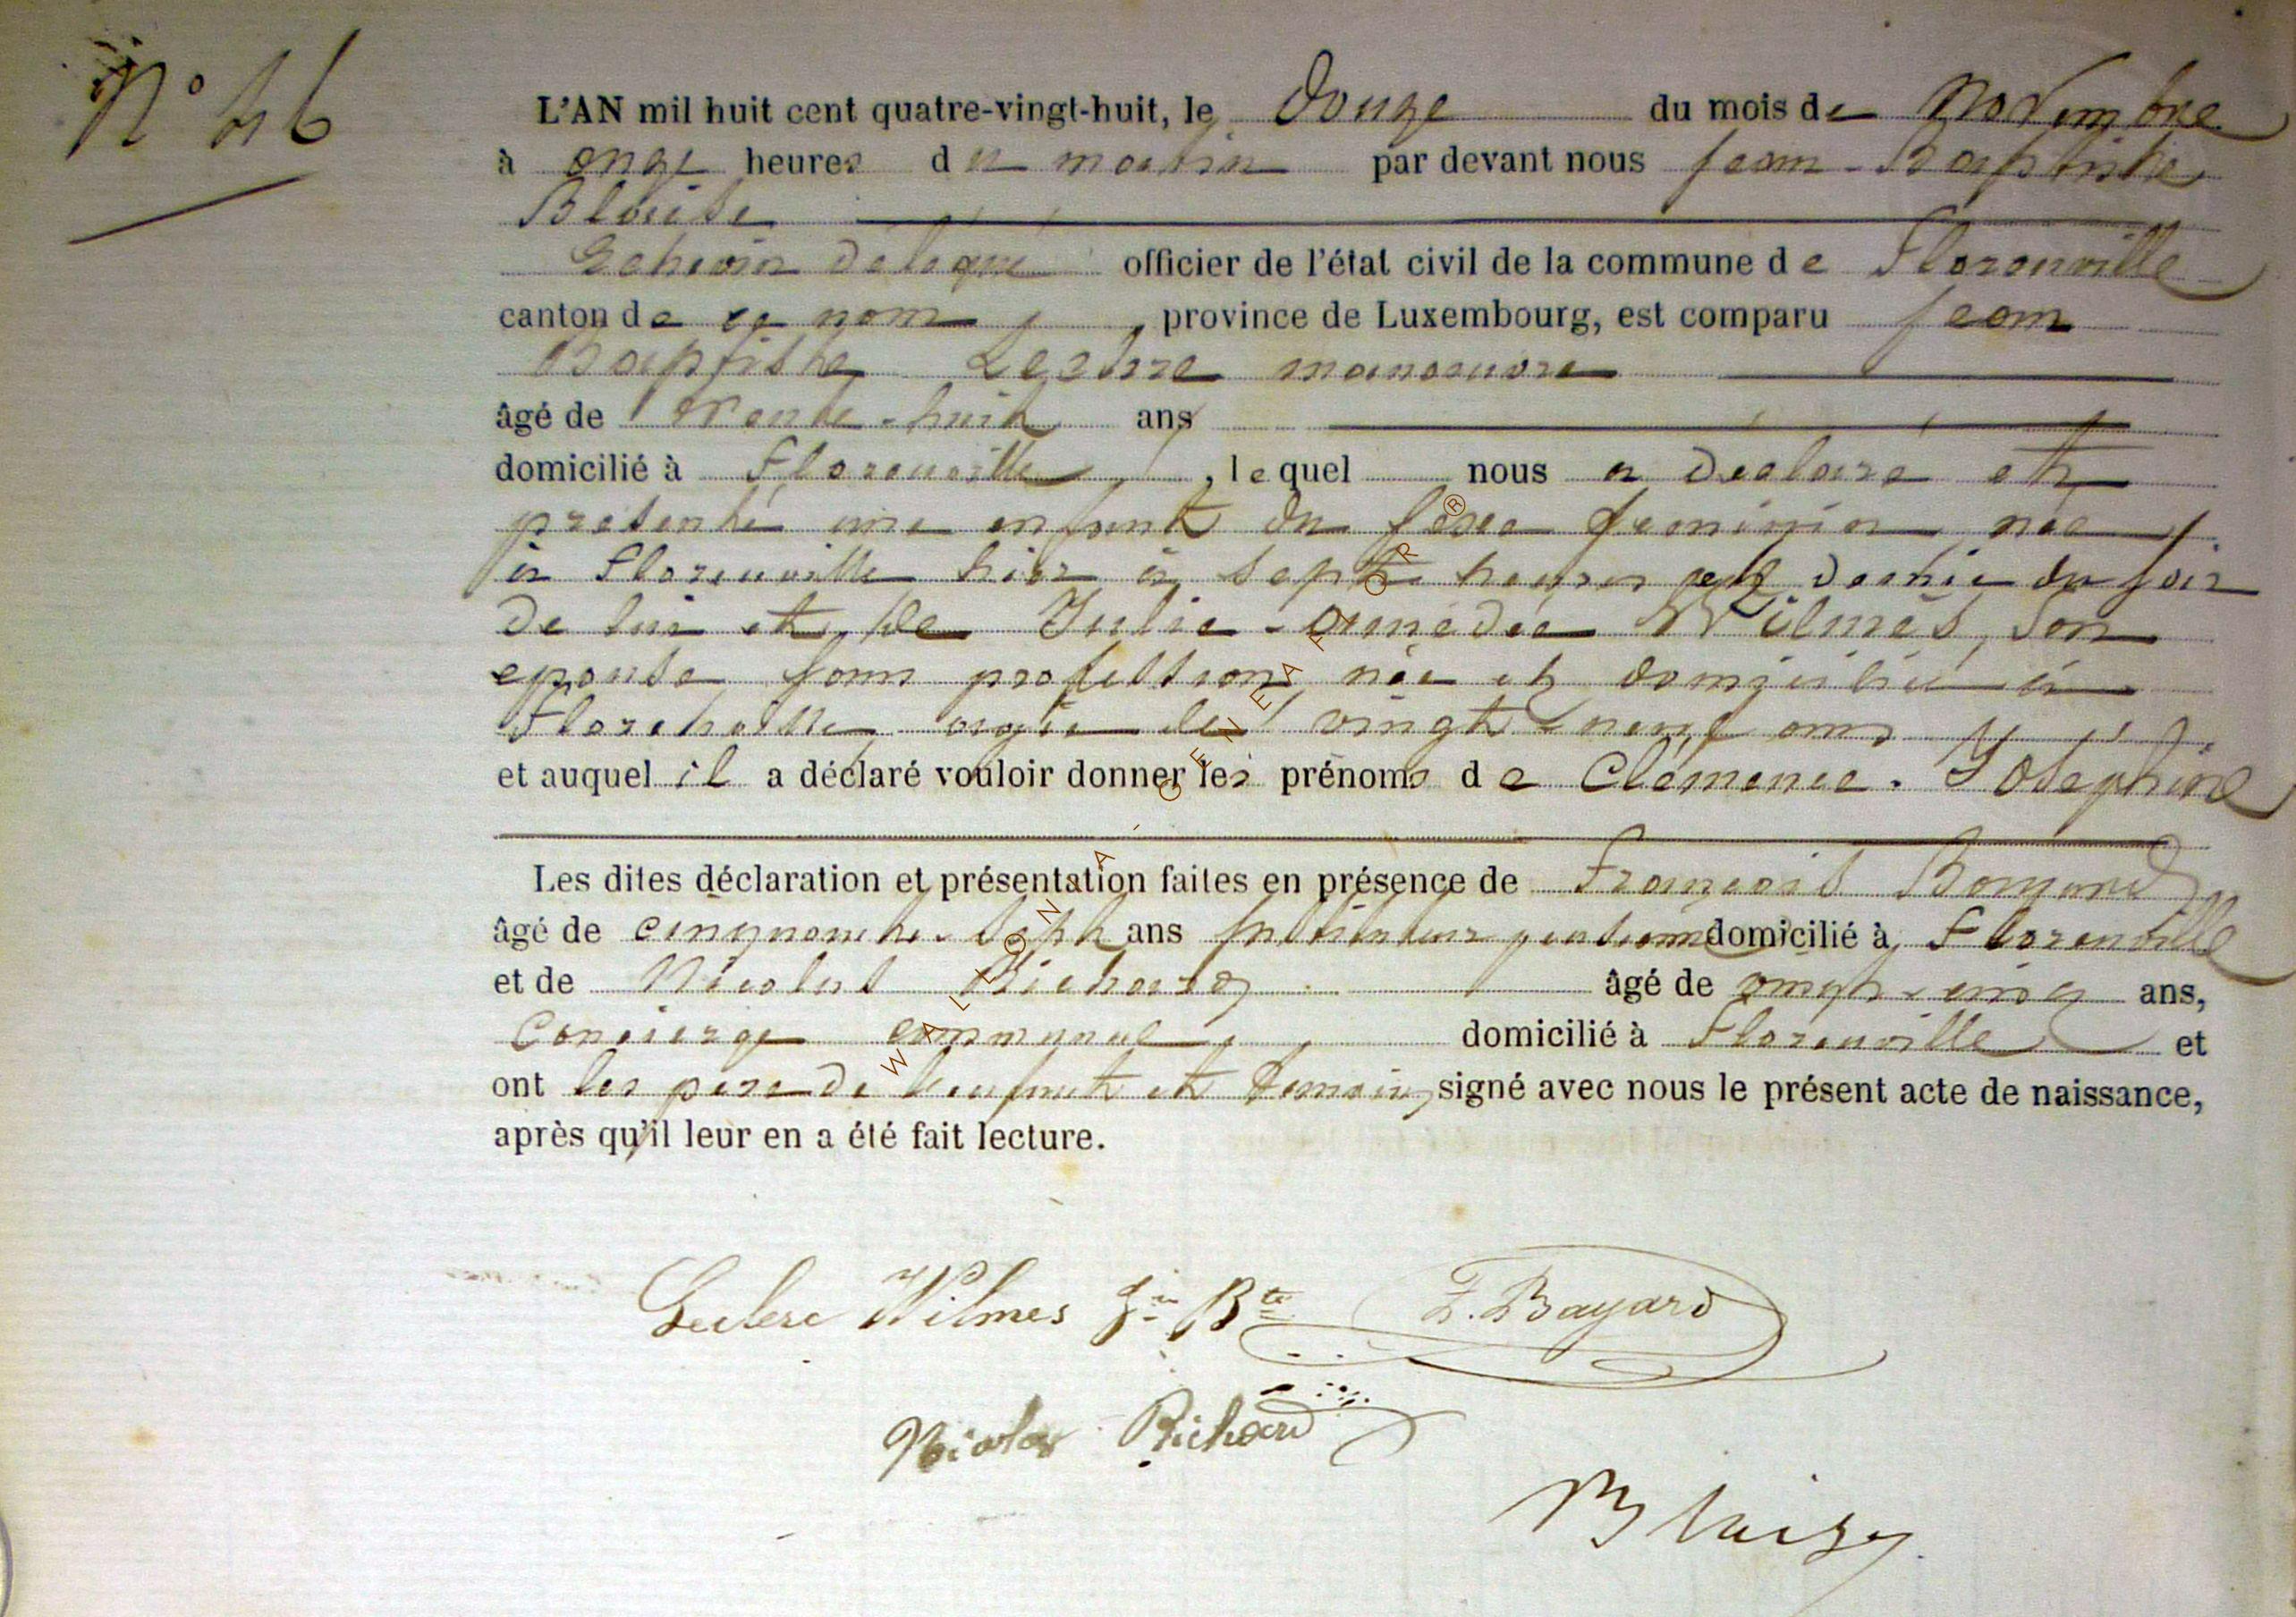 N° 46
L'AN mil huit cent quatre-vingt-huit, le douze du mois de novembre
à onze heures du matin par devant nous Jean-Baptiste
Blaise
Echevin délégué officier de l'état civil de la commune de Florenville
canton de ce nom, province de Luxembourg, est comparu Jean
Baptiste Leclere manoeuvre
âgé de trente-huit ans
domicilié à Florenville, lequel nous a déclaré et
présenté une enfant du sexe feminin née
à Florenville hier à sept heures et demie du soir
de lui et de Julie-Amédée Wilmes, son
epouse sans profession née et domiciliée à
Florenville agée de vingt-neuf ans
et auquel il a déclaré vouloir donner les prénoms de Clémence-Joséphine
Les dites déclaration et présentation faites en présence de François Bayard
âgé de cinquante-sept ans instituteur pensionné domicilié à Florenville
et de Nicolas Richard âgé de vingt-cinq ans,
Concierge communal, domicilié à Florenville et
ont les pere de l'enfant et temoins signé avec nous le présent acte de naissance,
après qu'il leur en a été fait lecture.
Leclere Wilmes Jn Bte F. Bayard
Nicolas Richard
Blaise
WALLONIA - GENEAFOR ®